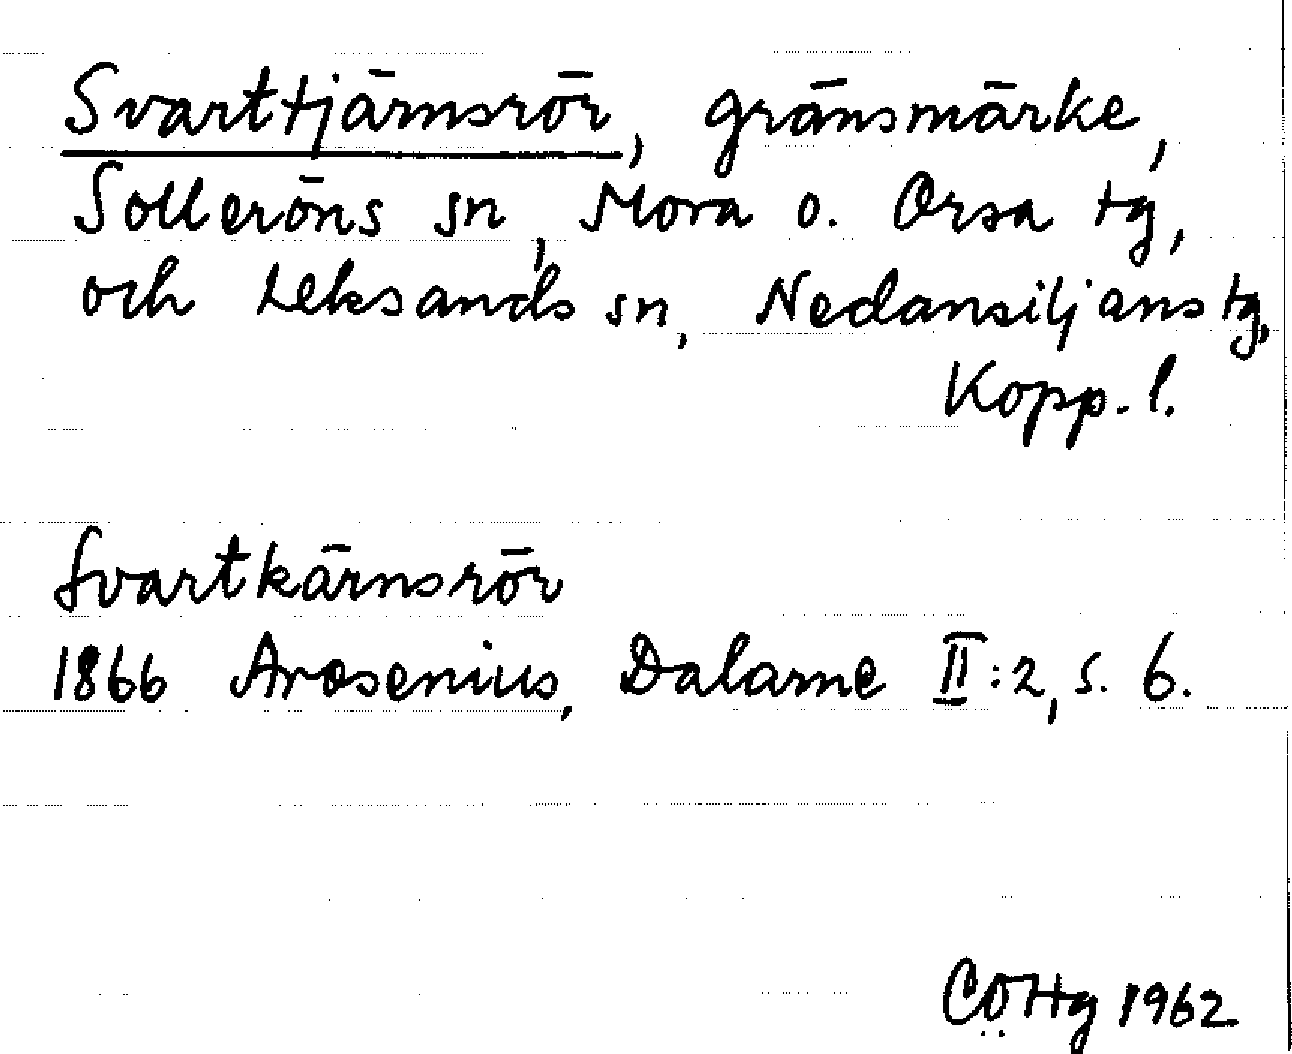 Svarttjärnsrör, gränsmärke,
Solleröns sn, Mora o. Orsa tg,
och Leksands sn, Nedansiljans tg,
Kopp. l.
Svartkärnsrör
1866 Arosenius, Dalarne II:2, s. 6.
CÖHg 1962